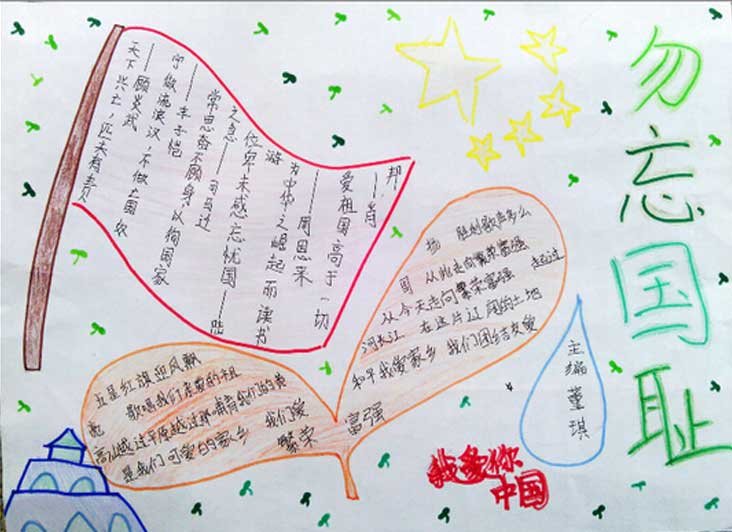 勿忘国耻
天下兴亡,匹夫有责
——顾炎武
宁做流浪汉,不做亡国奴
——丰子恺
常思奋不顾身以徇国家
之急——司马迁
位卑未感忘忧国——陆
游
为中华之崛起而读书
——周恩来
爱祖国高于一切
——肖
邦
五星红旗迎风飘
扬 胜利歌声多么
亮 歌唱我们亲爱的祖
国 从此走向繁荣富强
从今天走向繁荣富强 越过
高山越过平原越过那哺育我们的黄
河长江 在这片辽阔的土地
是我们可爱的家乡 我们爱
和平我爱家乡 我们团结友爱
繁荣 富强
主编 董琪
我爱你
中国